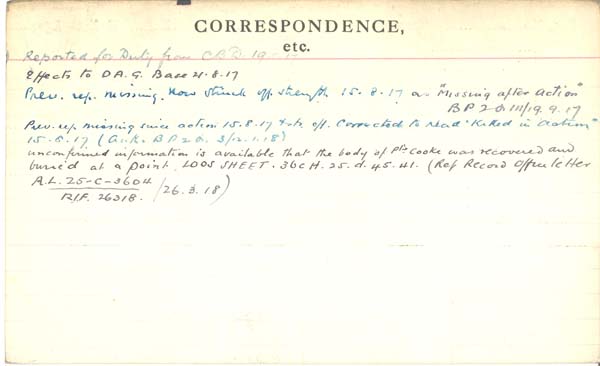 CORRESPONDENCE,
etc.
Reported for Duty from C.B.D. 19
Effects to D.A.G. Base 21.8.17
Prev. rep. missing. Now Struck off strength 15.8.17 as "Missing after Action"
BP 2 111/19.9.17
Prev. rep. missing since action 15.8.17 & str. off. Corrected to read "Killed in Action"
15.8.17 (Auth. BP 2 3/2.1.18)
unconfirmed information is available that the body of Pte Cooke was recovered and
buried at a point, LOOS SHEET. 36C H.25.d.45.41. (Ref Record Office letter
R.L. 25-C-3604
R/F. 26318. /26.3.18)